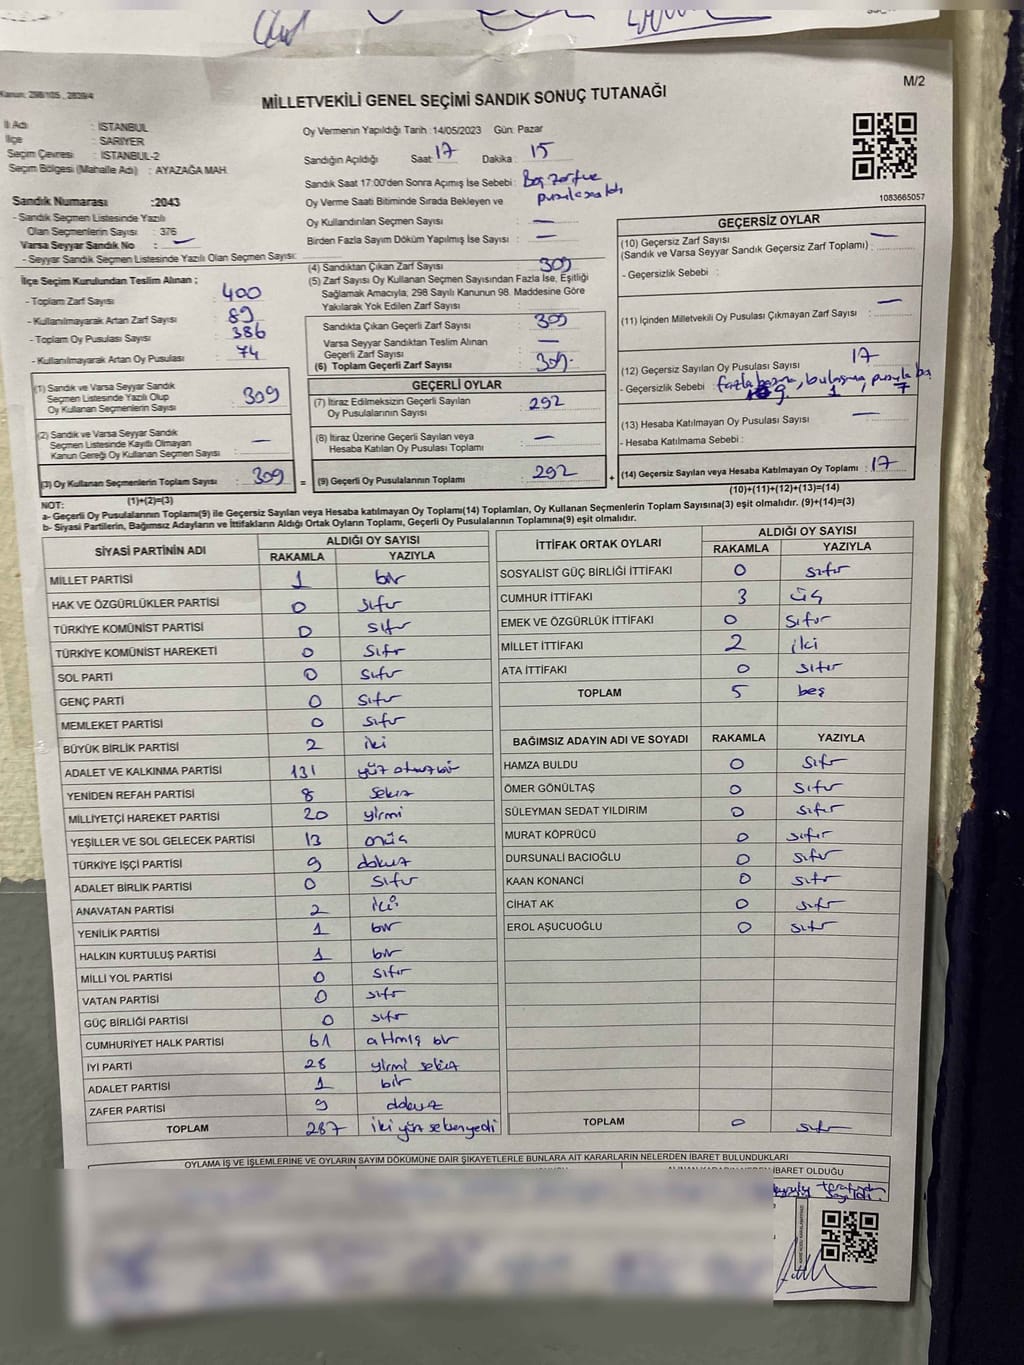 Kanun: 298/105 , 2839/4
M/2
MİLLETVEKİLİ GENEL SEÇİMİ SANDIK SONUÇ TUTANAĞI
İl Adı : İSTANBUL
İlçe : SARIYER
Seçim Çevresi : İSTANBUL-2
Seçim Bölgesi (Mahalle Adı) : AYAZAĞA MAH.
Sandık Numarası :2043
- Sandık Seçmen Listesinde Yazılı
Olan Seçmenlerin Sayısı : 376
Varsa Seyyar Sandık No : —
- Seyyar Sandık Seçmen Listesinde Yazılı Olan Seçmen Sayısı:
İlçe Seçim Kurulundan Teslim Alınan ;
- Toplam Zarf Sayısı : 400
- Kullanılmayarak Artan Zarf Sayısı : 89
- Toplam Oy Pusulası Sayısı : 386
- Kullanılmayarak Artan Oy Pusulası : 74
(1) Sandık ve Varsa Seyyar Sandık
Seçmen Listesinde Yazılı Olup
Oy Kullanan Seçmenlerin Sayısı : 309
(2) Sandık ve Varsa Seyyar Sandık
Seçmen Listesinde Kayıtlı Olmayan
Kanun Gereği Oy Kullanan Seçmen Sayısı : —
(3) Oy Kullanan Seçmenlerin Toplam Sayısı : 309
(1)+(2)=(3)
Oy Vermenin Yapıldığı Tarih :14/05/2023 Gün: Pazar
Sandığın Açıldığı Saat: 17 Dakika : 15
Sandık Saat 17:00'den Sonra Açımış İse Sebebi : Boş zarf ve
pusula sayıldı
Oy Verme Saati Bitiminde Sırada Bekleyen ve
Oy Kullandırılan Seçmen Sayısı : —
Birden Fazla Sayım Döküm Yapılmış İse Sayısı : —
(4) Sandıktan Çıkan Zarf Sayısı : 309
(5) Zarf Sayısı Oy Kullanan Seçmen Sayısından Fazla İse, Eşitliği
Sağlamak Amacıyla; 298 Sayılı Kanunun 98. Maddesine Göre
Yakılarak Yok Edilen Zarf Sayısı :
Sandıkta Çıkan Geçerli Zarf Sayısı : 309
Varsa Seyyar Sandıktan Teslim Alınan
Geçerli Zarf Sayısı : —
(6) Toplam Geçerli Zarf Sayısı : 309
GEÇERLİ OYLAR
(7) İtiraz Edilmeksizin Geçerli Sayılan
Oy Pusulalarının Sayısı : 292
(8) İtiraz Üzerine Geçerli Sayılan veya
Hesaba Katılan Oy Pusulası Toplamı : —
= (9) Geçerli Oy Pusulalarının Toplamı : 292
1083665057
GEÇERSİZ OYLAR
(10) Geçersiz Zarf Sayısı : —
(Sandık ve Varsa Seyyar Sandık Geçersiz Zarf Toplamı)
- Geçersizlik Sebebi :
(11) İçinden Milletvekili Oy Pusulası Çıkmayan Zarf Sayısı : —
(12) Geçersiz Sayılan Oy Pusulası Sayısı : 17
- Geçersizlik Sebebi : fazla basma, bulaşma, pusula boş
9 1 7
(13) Hesaba Katılmayan Oy Pusulası Sayısı : —
- Hesaba Katılmama Sebebi :
+ (14) Geçersiz Sayılan veya Hesaba Katılmayan Oy Toplamı : 17
(10)+(11)+(12)+(13)=(14)
NOT:
a- Geçerli Oy Pusulalarının Toplamı(9) ile Geçersiz Sayılan veya Hesaba katılmayan Oy Toplamı(14) Toplamları, Oy Kullanan Seçmenlerin Toplam Sayısına(3) eşit olmalıdır. (9)+(14)=(3)
b- Siyasi Partilerin, Bağımsız Adayların ve İttifakların Aldığı Ortak Oyların Toplamı, Geçerli Oy Pusulalarının Toplamına(9) eşit olmalıdır.
SİYASİ PARTİNİN ADI ALDIĞI OY SAYISI
RAKAMLA YAZIYLA
MİLLET PARTİSİ 1 bir
HAK VE ÖZGÜRLÜKLER PARTİSİ 0 sıfır
TÜRKİYE KOMÜNİST PARTİSİ 0 sıfır
TÜRKİYE KOMÜNİST HAREKETİ 0 sıfır
SOL PARTİ 0 sıfır
GENÇ PARTİ 0 sıfır
MEMLEKET PARTİSİ 0 sıfır
BÜYÜK BİRLİK PARTİSİ 2 iki
ADALET VE KALKINMA PARTİSİ 131 yüz otuz bir
YENİDEN REFAH PARTİSİ 8 sekiz
MİLLİYETÇİ HAREKET PARTİSİ 20 yirmi
YEŞİLLER VE SOL GELECEK PARTİSİ 13 onüç
TÜRKİYE İŞÇİ PARTİSİ 9 dokuz
ADALET BİRLİK PARTİSİ 0 sıfır
ANAVATAN PARTİSİ 2 iki
YENİLİK PARTİSİ 1 bir
HALKIN KURTULUŞ PARTİSİ 1 bir
MİLLİ YOL PARTİSİ 0 sıfır
VATAN PARTİSİ 0 sıfır
GÜÇ BİRLİĞİ PARTİSİ 0 sıfır
CUMHURİYET HALK PARTİSİ 61 atmış bir
İYİ PARTİ 28 yirmi sekiz
ADALET PARTİSİ 1 bir
ZAFER PARTİSİ 9 dokuz
TOPLAM 287 iki yüz seksenyedi
İTTİFAK ORTAK OYLARI ALDIĞI OY SAYISI
RAKAMLA YAZIYLA
SOSYALİST GÜÇ BİRLİĞİ İTTİFAKI 0 sıfır
CUMHUR İTTİFAKI 3 üç
EMEK VE ÖZGÜRLÜK İTTİFAKI 0 sıfır
MİLLET İTTİFAKI 2 iki
ATA İTTİFAKI 0 sıfır
TOPLAM 5 beş
BAĞIMSIZ ADAYIN ADI VE SOYADI RAKAMLA YAZIYLA
HAMZA BULDU 0 sıfır
ÖMER GÖNÜLTAŞ 0 sıfır
SÜLEYMAN SEDAT YILDIRIM 0 sıfır
MURAT KÖPRÜCÜ 0 sıfır
DURSUNALİ BACIOĞLU 0 sıfır
KAAN KONANCİ 0 sıfır
CİHAT AK 0 sıfır
EROL AŞUCUOĞLU 0 sıfır
TOPLAM 0 sıfır
OYLAMA İŞ VE İŞLEMLERİNE VE OYLARIN SAYIM DÖKÜMÜNE DAİR ŞİKAYETLERLE BUNLARA AİT KARARLARIN NELERDEN İBARET BULUNDUKLARI
İBARET OLDUĞU
tarafından